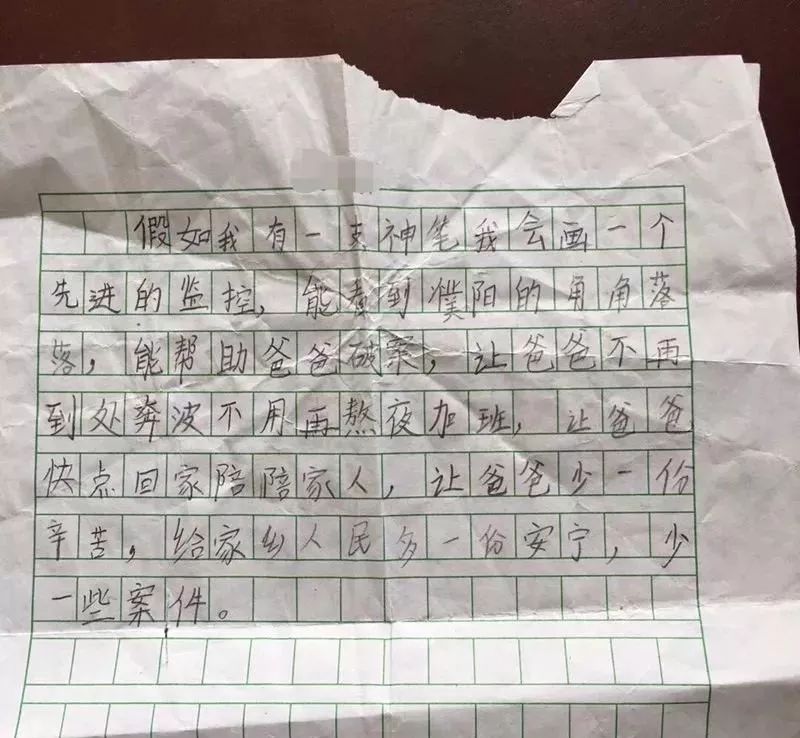 假如我有一支神笔我会画一个
先进的监控，能看到濮阳的角角落
落，能帮助爸爸破案，让爸爸不再
到处奔波不用再熬夜加班，让爸爸
快点回家陪陪家人，让爸爸少一份
辛苦，给家乡人民多一份安宁，少
一些案件。